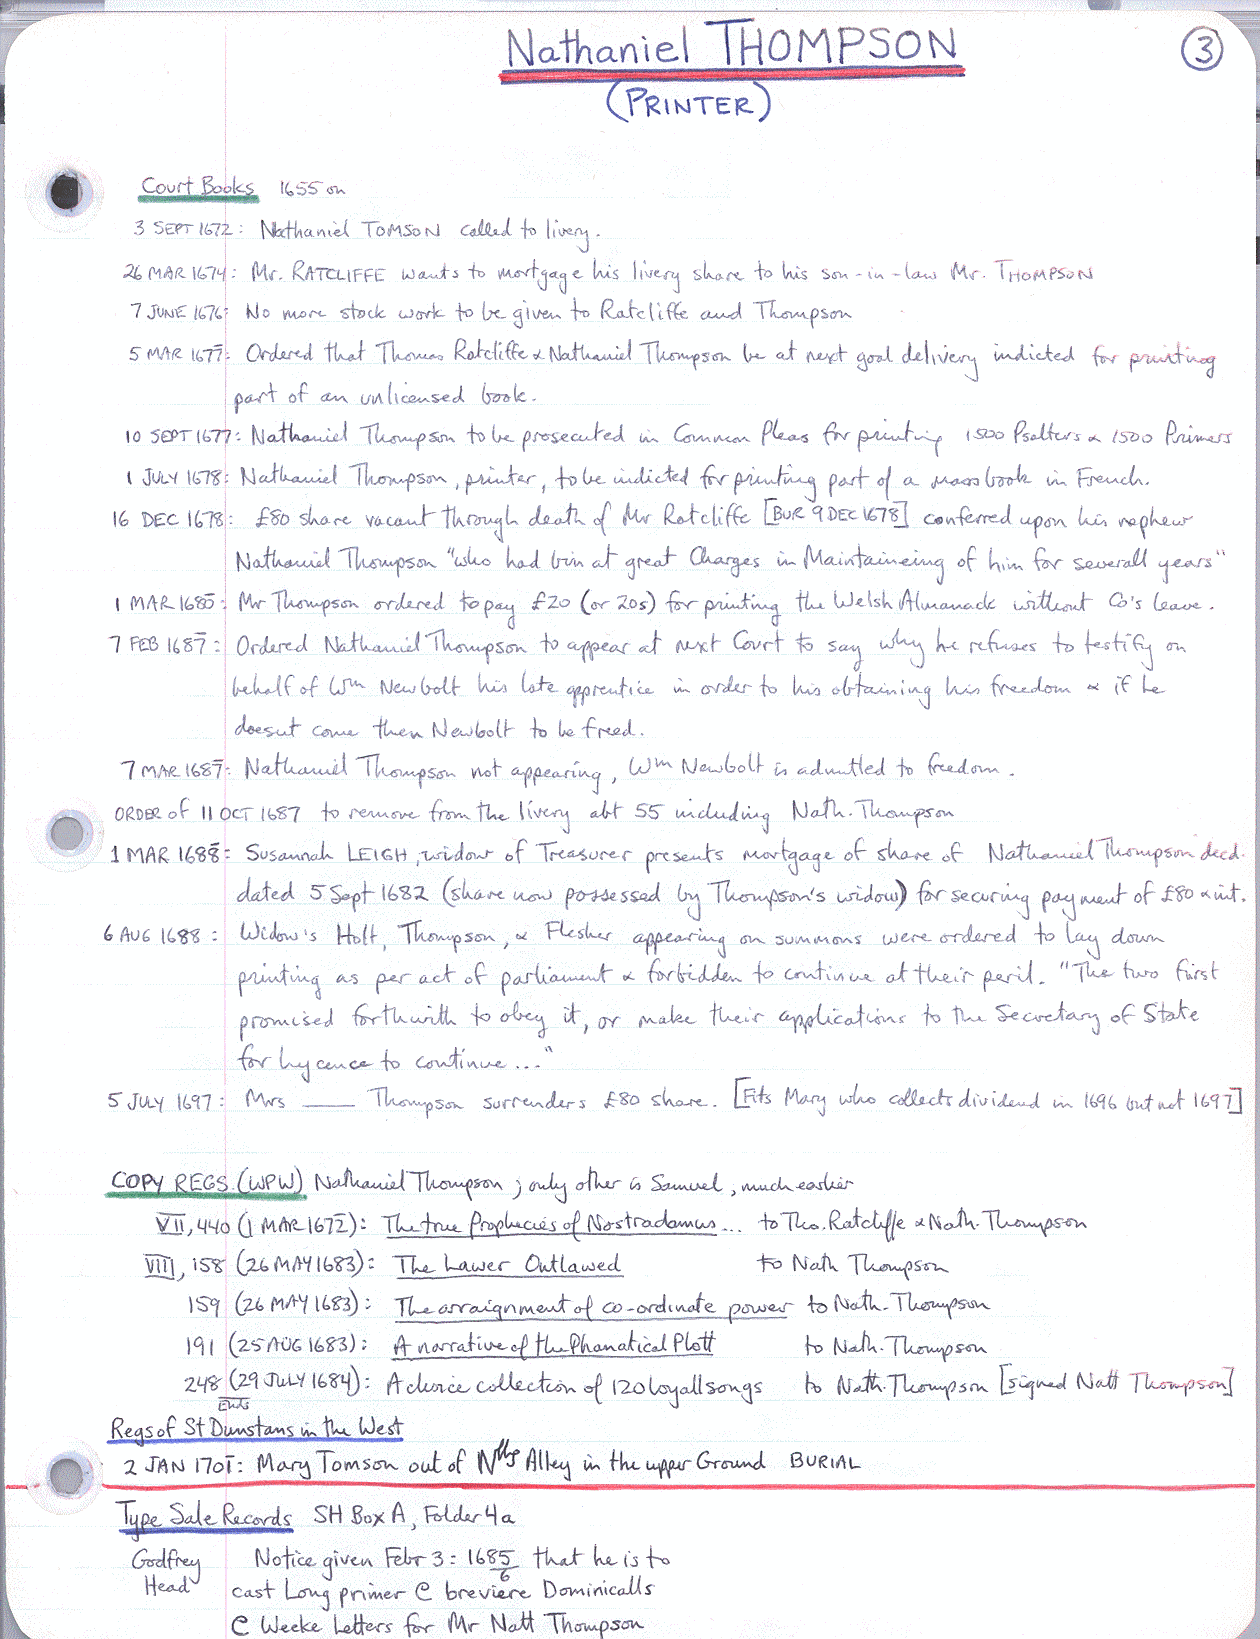 Nathaniel THOMPSON
3
(PRINTER)
Court Books 1655 on
3 SEPT 1672: Nathaniel TOMSON called to livery.
26 MAR 1674: Mr. RATCLIFFE wants to mortgage his livery share to his son-in-law Mr. THOMPSON
7 JUNE 1676: No more stock work to be given to Ratcliffe and Thompson
5 MAR 1677̅: Ordered that Thomas Ratcliffe & Nathaniel Thompson be at next goal delivery indicted for printing
part of an unlicensed book.
10 SEPT 1677: Nathaniel Thompson to be prosecuted in Common Pleas for printing 1500 Psalters & 1500 Primers
1 JULY 1678: Nathaniel Thompson, printer, to be indicted for printing part of a mass book in French.
16 DEC 1678: £80 share vacant through death of Mr Ratcliffe [BUR 9 DEC 1678] conferred upon his nephew
Nathaniel Thompson "who had bin at great Charges in Maintaineing of him for severall years"
1 MAR 1680̅: Mr Thompson ordered to pay £20 (or 20s) for printing the Welsh Almanack without Co's leave.
7 FEB 1687̅: Ordered Nathaniel Thompson to appear at next Court to say why he refuses to testify on
behalf of Wm Newbolt his late apprentice in order to his obtaining his freedom & if he
doesnt come then Newbolt to be freed.
7 MAR 1687̅: Nathaniel Thompson not appearing, Wm Newbolt is admitted to freedom.
ORDER of 11 OCT 1687 to remove from the livery abt 55 including Nath. Thompson
1 MAR 1688̅: Susannah LEIGH, widow of Treasurer presents mortgage of share of Nathaniel Thompson decd.
dated 5 Sept 1682 (share now possessed by Thompson's widow) for securing payment of £80 & int.
6 AUG 1688: Widow's Holt, Thompson, & Flesher appearing on summons were ordered to lay down
printing as per act of parliament & forbidden to continue at their peril. "The two first
promised forthwith to obey it, or make their applications to the Secretary of State
for lycence to continue..."
5 JULY 1697: Mrs ___ Thompson surrenders £80 share. [Fits Mary who collects dividend in 1696 but not 1697]
COPY REGS. (WPW) Nathaniel Thompson; only other is Samuel, much earlier
VII, 440 (1 MAR 1672̅): The true Prophecies of Nostradamus... to Tho. Ratcliffe & Nath. Thompson
VIII, 158 (26 MAY 1683): The Lawer Outlawed to Nath Thompson
159 (26 MAY 1683): The arraignment of co-ordinate power to Nath. Thompson
191 (25 AUG 1683): A narrative of the Phanatical Plott to Nath. Thompson
248 (29 JULY 1684): A choice collection of 120 loyall songs to Nath. Thompson [signed Natt Thompson]
Ends
Regs of St Dunstans in the West
2 JAN 1701̅: Mary Tomson out of Alley in the upper Ground BURIAL
Type Sale Records SH Box A, Folder 4a
Godfrey Head Notice given Febr 3: 1685/6 that he is to
cast Long primer @ breviere Dominicalls
@ Weeke Letters for Mr Natt Thompson